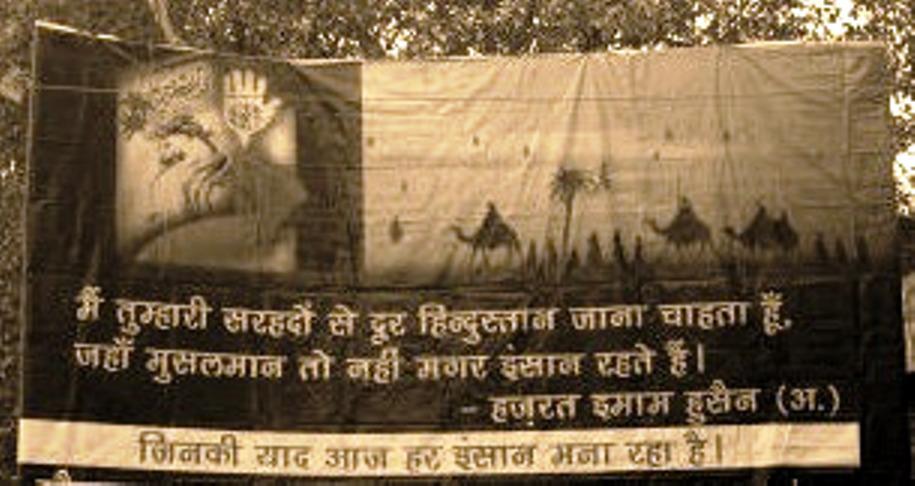 मैं तुम्हारी सरहदों से दूर हिन्दुस्तान जाना चाहता हूँ,
जहाँ मुसलमान तो नहीं मगर इंसान रहते हैं।
- हज़रत इमाम हुसैन (अ.)
जिनकी याद आज हर इंसान मना रहा है।